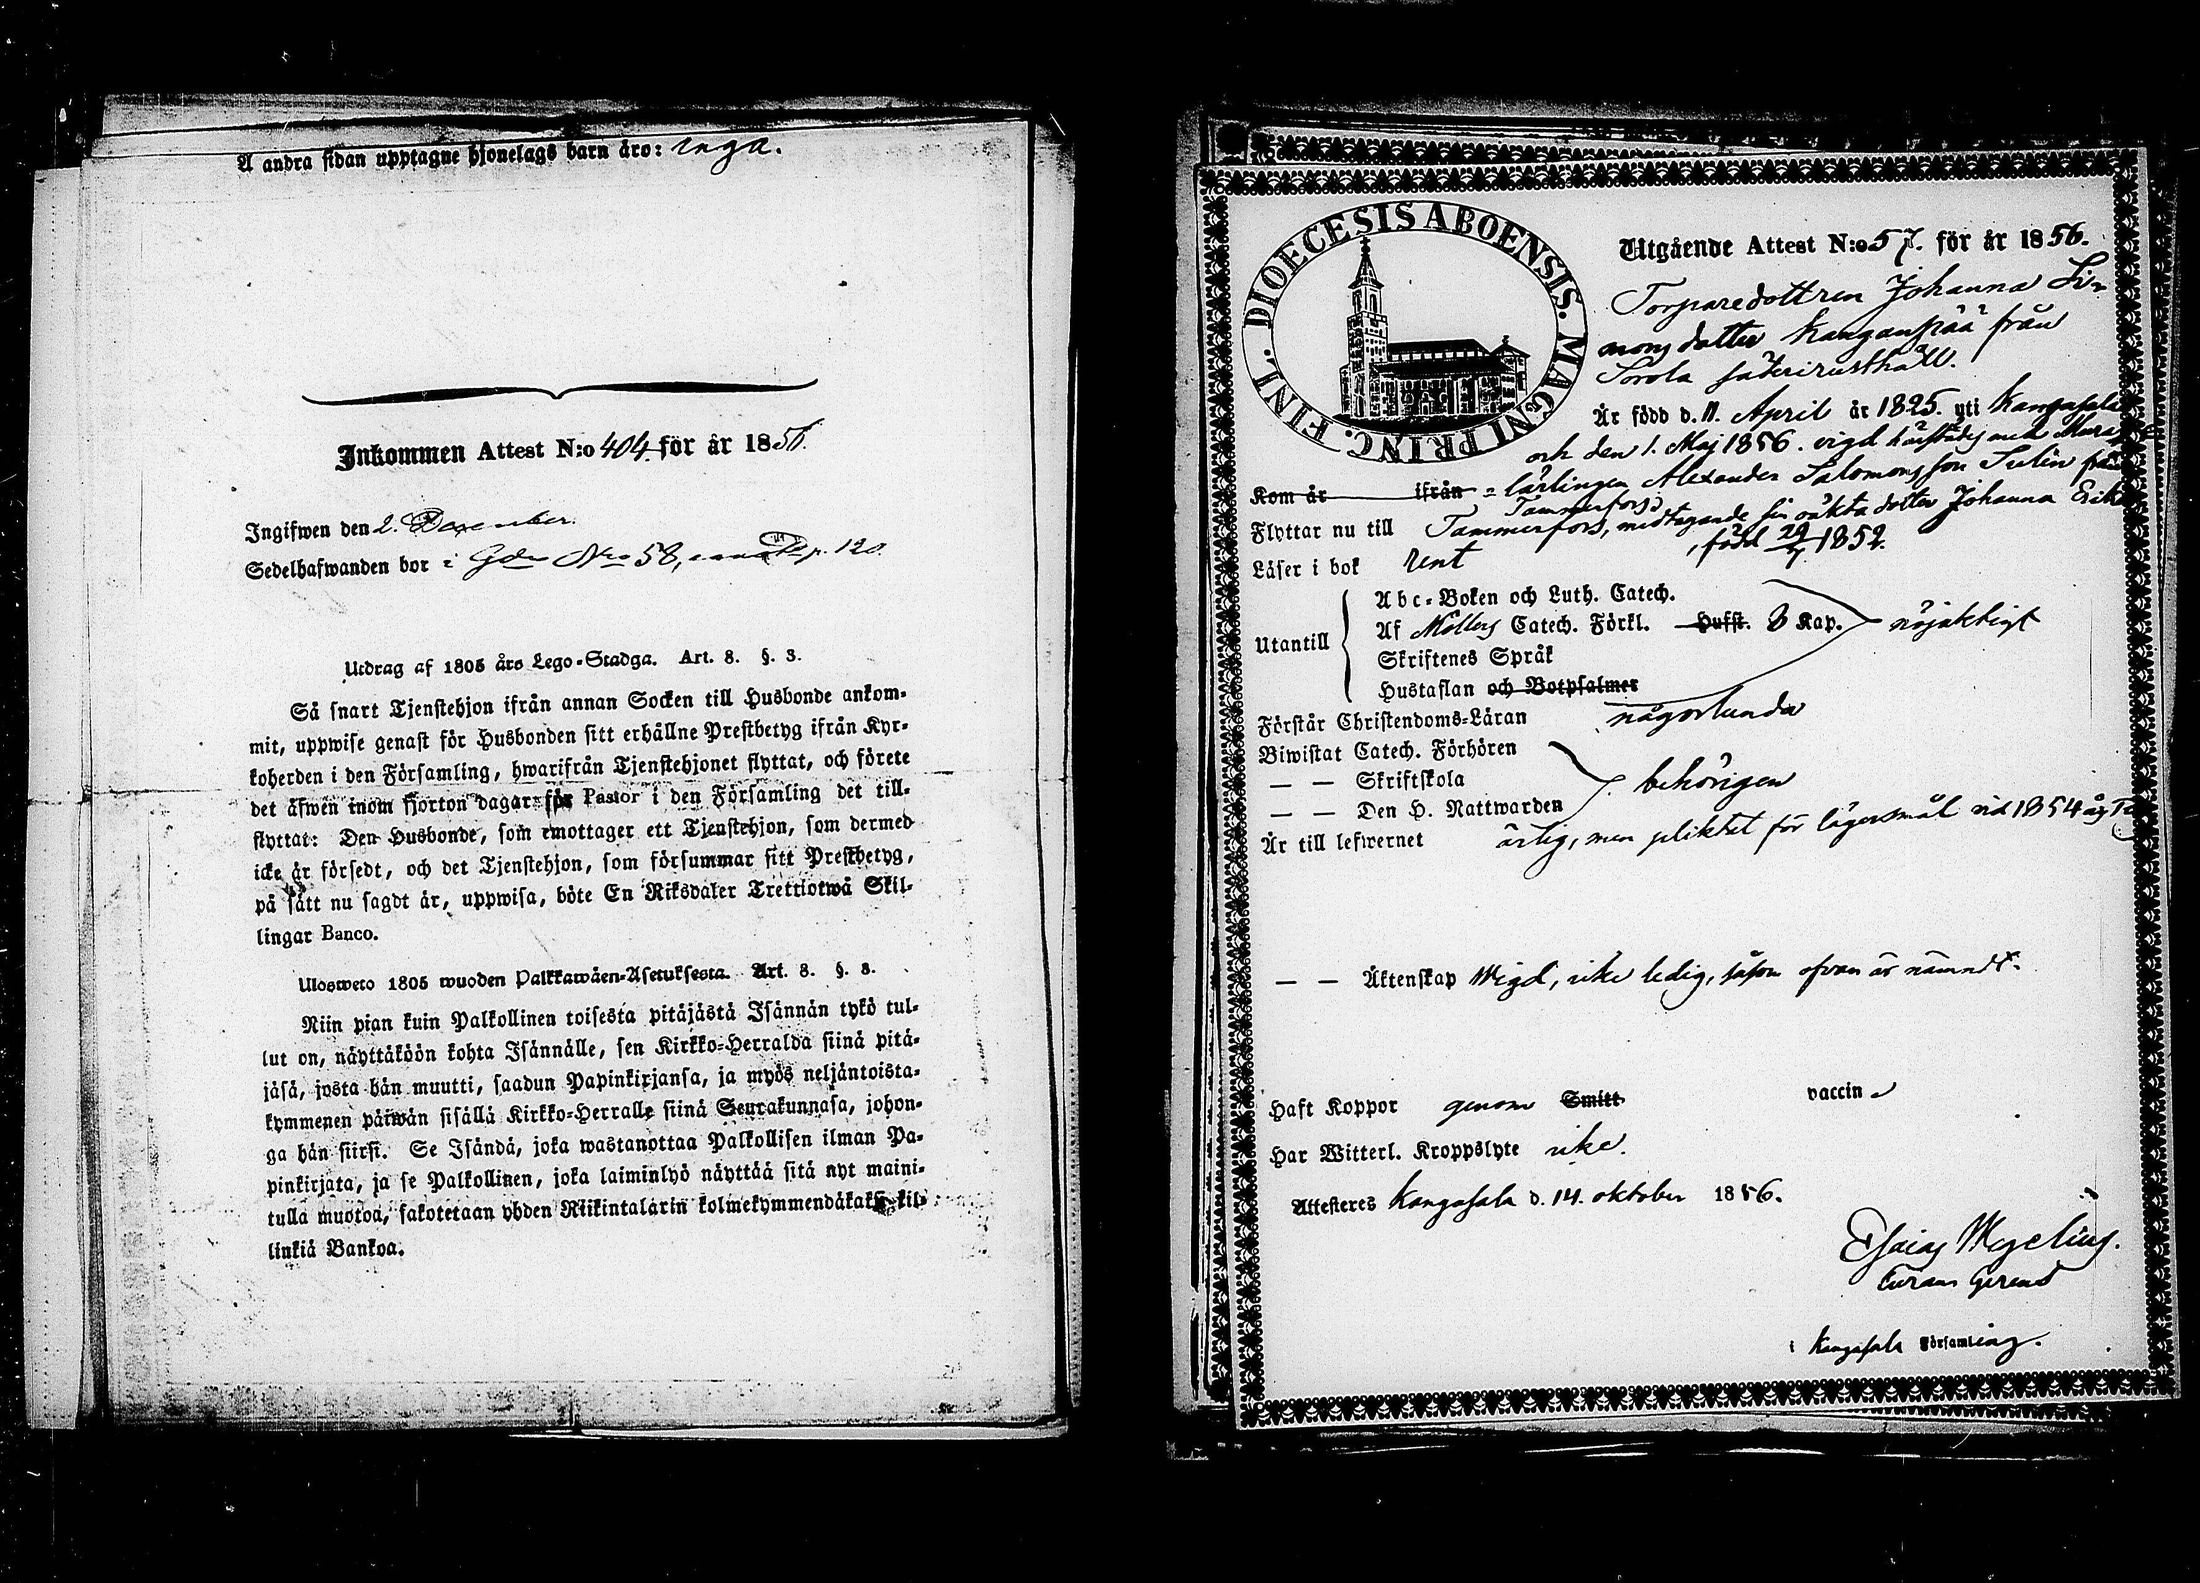 A andra sidan upptagne hjonelags barn äro: inga.
Inkommen Attest N:o 404. för år 1856.
Ingifwen den 2. December.
Sedelhafwanden bor i Gdn Nro 58, p. 120.
Utdrag af 1805 års Lego-Stadga. Art. 8. §. 3.
Så snart Tjenstehjon ifrån annan Socken till Husbonde ankom-
mit, uppwise genast för Husbonden sitt erhållne Prestbetyg ifrån Kyr-
koherden i den Församling, hwarifrån Tjenstehjonet flyttat, och förete
det äfwen inom fjorton dagar för Pastor i den Församling det till-
flyttat: Den Husbonde, som emottager ett Tjenstehjon, som dermed
icke är försedt, och det Tjenstehjon, som försummar sitt Prestbetyg,
på sätt nu sagdt är, uppwisa, böte En Riksdaler Trettiotwå Skil-
lingar Banco.
Ulosweto 1805 wuoden Palkkawäen-Asetuksesta. Art. 8. §. 3.
Niin pian kuin Palkollinen toisesta pitäjästä Isännän tykö tul-
lut on, näyttäköön kohta Isännälle, sen Kirkko-Herralda siinä pitä-
jäsä, josta hän muutti, saadun Papinkirjansa, ja myös neljäntoista-
kymmenen päiwän sisällä Kirkko-Herralle siinä Seurakunnasa, johon-
ga hän siirsi. Se Isändä, joka wastanottaa Palkollisen ilman Pa-
pinkirjata, ja se Palkollinen, joka laiminlyö näyttää sitä nyt maini-
tulla muotoa, sakotetaan yhden Riikintalarin kolmekymmendäkaksi kil-
linkiä Bankoa.
DIOECESIS ABOENSIS. MAGNI PRINC. FINL.
Utgående Attest N:o 57. för år 1856.
Torparedottren Johanna Si-
monsdotter Kanganpää från
Sorola säterirusthåll.
Är född d. 11. April år 1825. uti Kangasala
och den 1. Maj 1856. vigd härstädes med
Kom år ifrån = lärlingen Alexander Salomonsson Sulin från
Tammerfors
Flyttar nu till Tammerfors, medtagande sin oäkta dotter Johanna Erik
, född 29/ 1852.
Läser i bok rent
Utantill
Abc-Boken och Luth. Catech.
Af Möllers Catech. Förkl. Hufst. 8 Kap. nöjaktigt
Skriftenes Språk
Hustaflan och Botpsalmer
Förstår Christendoms-Läran någorlunda
Biwistat Catech. Förhören
— — Skriftskola behörigen
— — Den H. Nattwarden
Är till lefwernet ärlig, men pliktet för lägersmål vid 1854 års
— — Äktenskap Wigd, icke ledig, såsom ofvan är nämndt.
Haft Koppor genom Smitt vaccin
Har Witterl. Kroppslyte icke.
Attesteres Kangasala d. 14. oktober 1856.
Esaias Wegelius.
Curam Gerens
i Kangasala Församling.